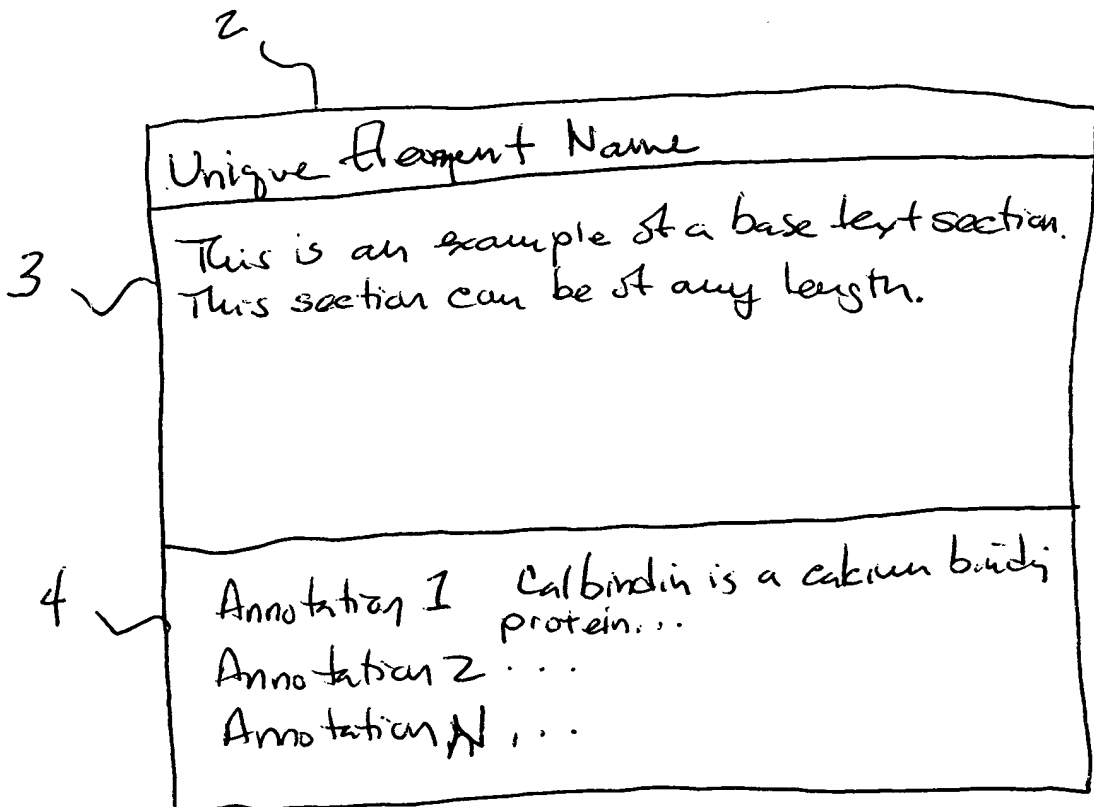 2
Unique Element Name
3
This is an example of a base text section.
This section can be of any length.
4
Annotation 1 Calbindin is a calcium bindi
protein...
Annotation 2 ...
Annotation N ...